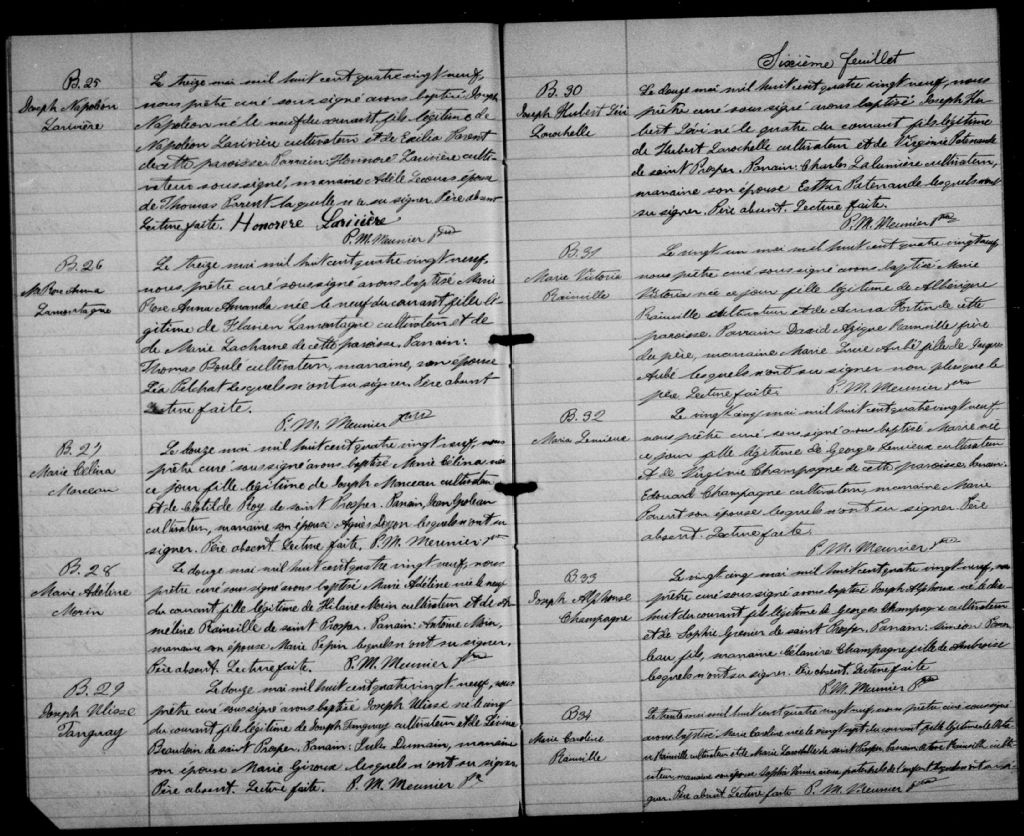 B. 25
Joseph Napoléon
Larivière
Le treize mai mil huit cent quatre vingt neuf,
nous prêtre curé soussigné avons baptisé Joseph
Napoléon né le neuf du courant, fils légitime de
Napoléon Larivière cultivateur et de Exilia Parent
de cette paroisse. Parrain: Honnoré Larivière culti-
vateur soussigné, marraine Adèle Lecours épouse
de Thomas Parent laquelle n'a su signer. Père absent
Lecture faite. Honorere Lariviére
P. M. Meunier ptre
B. 26
Ma Rose Anna
Lamontagne
Le treize mai mil huit cent quatre vingt neuf,
nous prêtre curé soussigné avons baptisé Marie
Rose Anna Amanda née le neuf du courant, fille lé-
gitime de Lamontagne cultivateur et de
de Marie Lachance de cette paroisse. Parrain:
Thomas Poulé cultivateur, marraine, son épouse
Léa Pelchat lesquels n'ont su signer. Père absent
Lecture faite.
P. M. Meunier ptre
B. 27
Marie Célina
Marceau
Le douze mai mil huit cent quatre vingt neuf, nous
prêtre curé soussigné avons baptisé Marie Célina née
ce jour fille légitime de Joseph Marceau cultivateur
et de Clotilde Roy de saint Prosper. Parrain, Jean
cultivateur, marraine son épouse Agnès lesquels n'ont su
signer. Père absent. Lecture faite. P. M. Meunier ptre
B. 28
Marie Adeline
Morin
Le douze mai mil huit cent quatre vingt neuf, nous
prêtre curé soussigné avons baptisé Marie Adéline née le neuf
du courant fille légitime de Hilaire Morin cultivateur et de Ar-
méline Rainville de saint Prosper. Parrain: Antoine Morin,
marraine son épouse Marie Pépin lesquels n'ont su signer.
Père absent. Lecture faite. P. M. Meunier ptre
B. 29
Joseph Ulisse
Tanguay
Le douze mai mil huit cent quatre vingt neuf, nous
prêtre curé soussigné avons baptisé Joseph Ulisse né le cinq
du courant fils légitime de Joseph Tanguay cultivateur et de
Beaudoin de saint Prosper. Parrain: Jules marraine
son épouse Marie Giroux lesquels n'ont su signer.
Père absent. Lecture faite. P. M. Meunier ptr
Sixième feuillet
B. 30
Joseph Hubert Lévi
Larochelle
Le douze mai mil huit cent quatre vingt neuf, nous
prêtre curé soussigné avons baptisé Joseph Hu-
bert Lévi né le quatre du courant fils légitime
de Hubert Larochelle cultivateur et de Virginie Patenaude
de saint Prosper. Parrain: Charles Lalumière cultivateur,
marraine son épouse Esther Patenaude lesquels n'ont
su signer. Père absent. Lecture faite.
P. M. Meunier ptre
B. 31
Marie Victoria
Rainville
Le vingt un mai mil huit cent quatre vingt neuf
nous prêtre curé soussigné avons baptisé Marie
Victoria née ce jour fille légitime de Albérique
Rainville cultivateur et de Anna Fortin de cette
paroisse. Parrain David Rainville frère
du père, marraine Marie Aubé fille de Jacques
Aubé lesquels n'ont su signer non plus que le
père. Lecture faite. P. M. Meunier ptre
B. 32
Maria Lemieux
Le vingt cinq mai mil huit cent quatre vingt neuf
nous prêtre curé soussigné avons baptisé Maria née
ce jour fille légitime de Georges Lemieux cultivateur
et de Virginie Champagne de cette paroisse. Parrain:
Edouard Champagne cultivateur, marraine Marie
son épouse lesquels n'ont su signer. Père
absent. Lecture faite.
P. M. Meunier ptre
B 33
Joseph Alphonse
Champagne
Le vingt cinq mai mil huit cent quatre vingt neuf, nous
prêtre curé soussigné avons baptisé Joseph Alphonse né le dix
huit du courant fils légitime de Georges Champagne cultivateur
et de Sophie Grenier de saint Prosper. Parrain: Siméon
fils, marraine Champagne fille de Ambroise
lesquels n'ont su signer. Père absent. Lecture faite
P. M. Meunier Ptre
B 34
Marie Caroline
Rainville
Le trente mai mil huit cent quatre vingt neuf nous prêtre curé soussigné
avons baptisé Marie Caroline née le vingt sept du courant fille légitime de
Rainville cultivateur et de Marie Larochelle de saint Prosper. Parrain Rainville culti-
vateur marraine son épouse Sophie de l'enfant lesquels n'ont su si-
gner. Père absent Lecture faite P. M. Meunier ptre